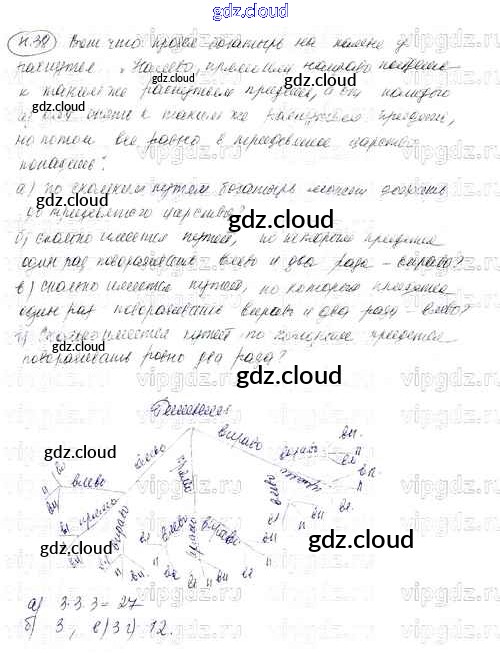 gdz.cloud
4.38) Вот что прочёл богатырь на камне у
распутья: "Налево, прямо или направо пойдёшь –
к такому же распутью придёшь, а от каждого
из них опять к таким же распутьям придёшь,
но потом всё равно в тридевятое царство
попадёшь".
а) по скольким путям богатырь может добраться
до тридевятого царства?
б) сколько имеется путей, по которым придётся
один раз поворачивать влево и два раза – вправо?
в) сколько имеется путей, по которым придётся
один раз поворачивать вправо и два раза – влево?
г) Сколько имеется путей по которым придётся
поворачивать ровно два раза?
gdz.cloud
gdz.cloud
gdz.cloud
влево
вправо
влево
прямо
вправо
влево
прямо
вправо
влево
вправо
gdz.cloud
gdz.cloud
а) 3·3·3=27
б) 3, в) 3 г) 12.
gdz.cloud